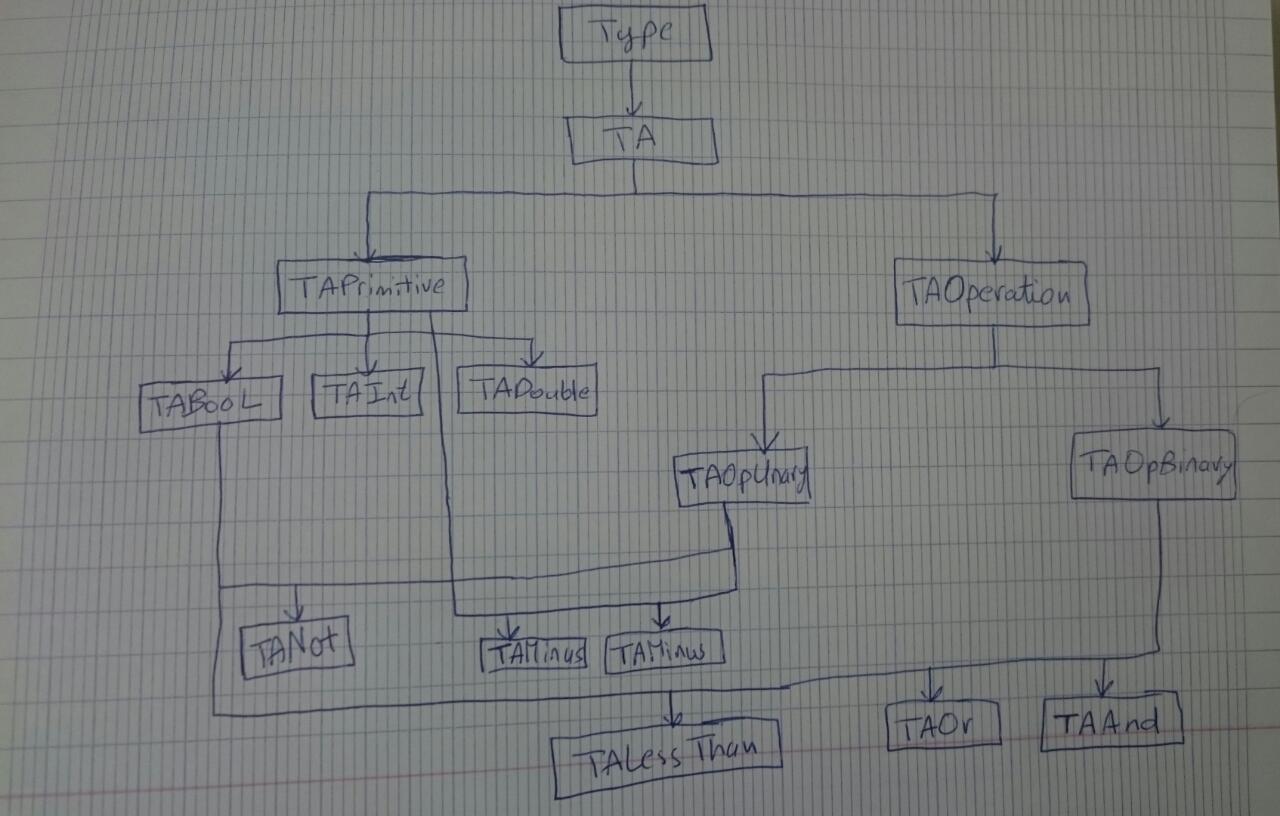 Type
TA
TAPrimitive
TAOperation
TABooL
TAInt
TADouble
TAOpUnary
TAOpBinary
TANot
TAMinus
TAMinus
TAOr
TAAnd
TALess Than